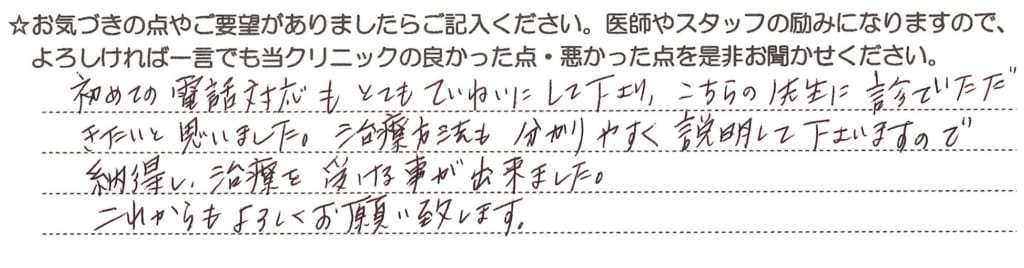 ☆お気づきの点やご要望がありましたらご記入ください。医師やスタッフの励みになりますので、
よろしければ一言でも当クリニックの良かった点・悪かった点を是非お聞かせください。
初めての電話対応もとてもていねいにして下さり、こちらの先生に診ていただ
きたいと思いました。治療方法も分かりやすく説明して下さいますので
納得し、治療を受ける事が出来ました。
これからもよろしくお願い致します。